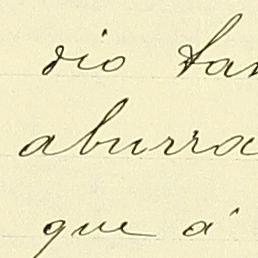 dio tan
aburra
que á